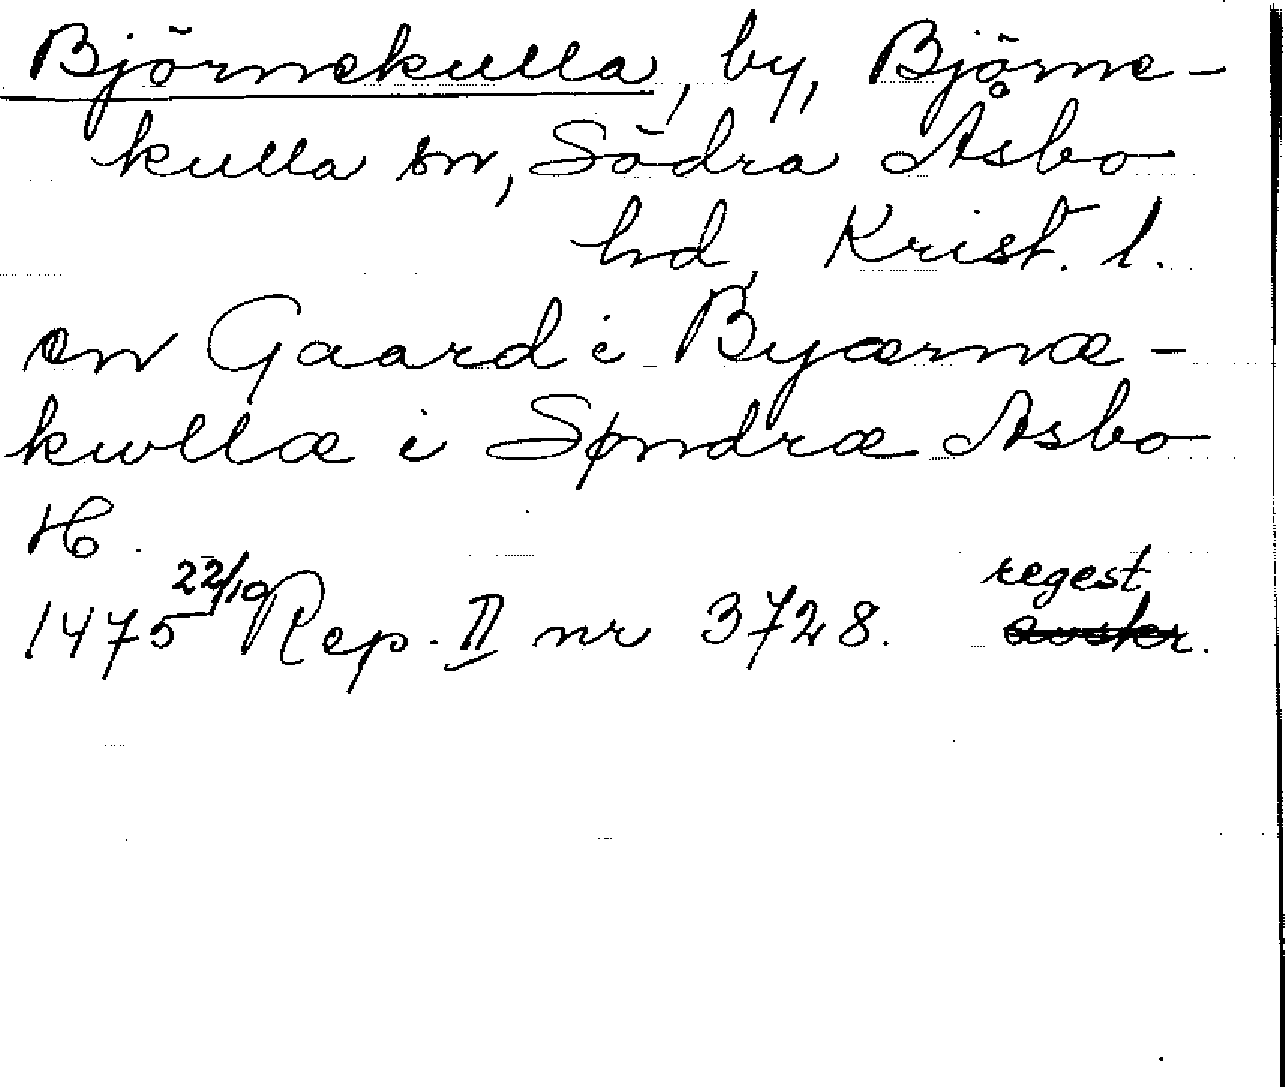 Björnekulla, by, Björne-
kulla sn, Södra Åsbo
hd, Krist. l.
en Gaard i Byærnæ-
kwllæ i Søndræ Asbo
H.
1475 22/10 Rep. II nr 3728. regest
avskr.